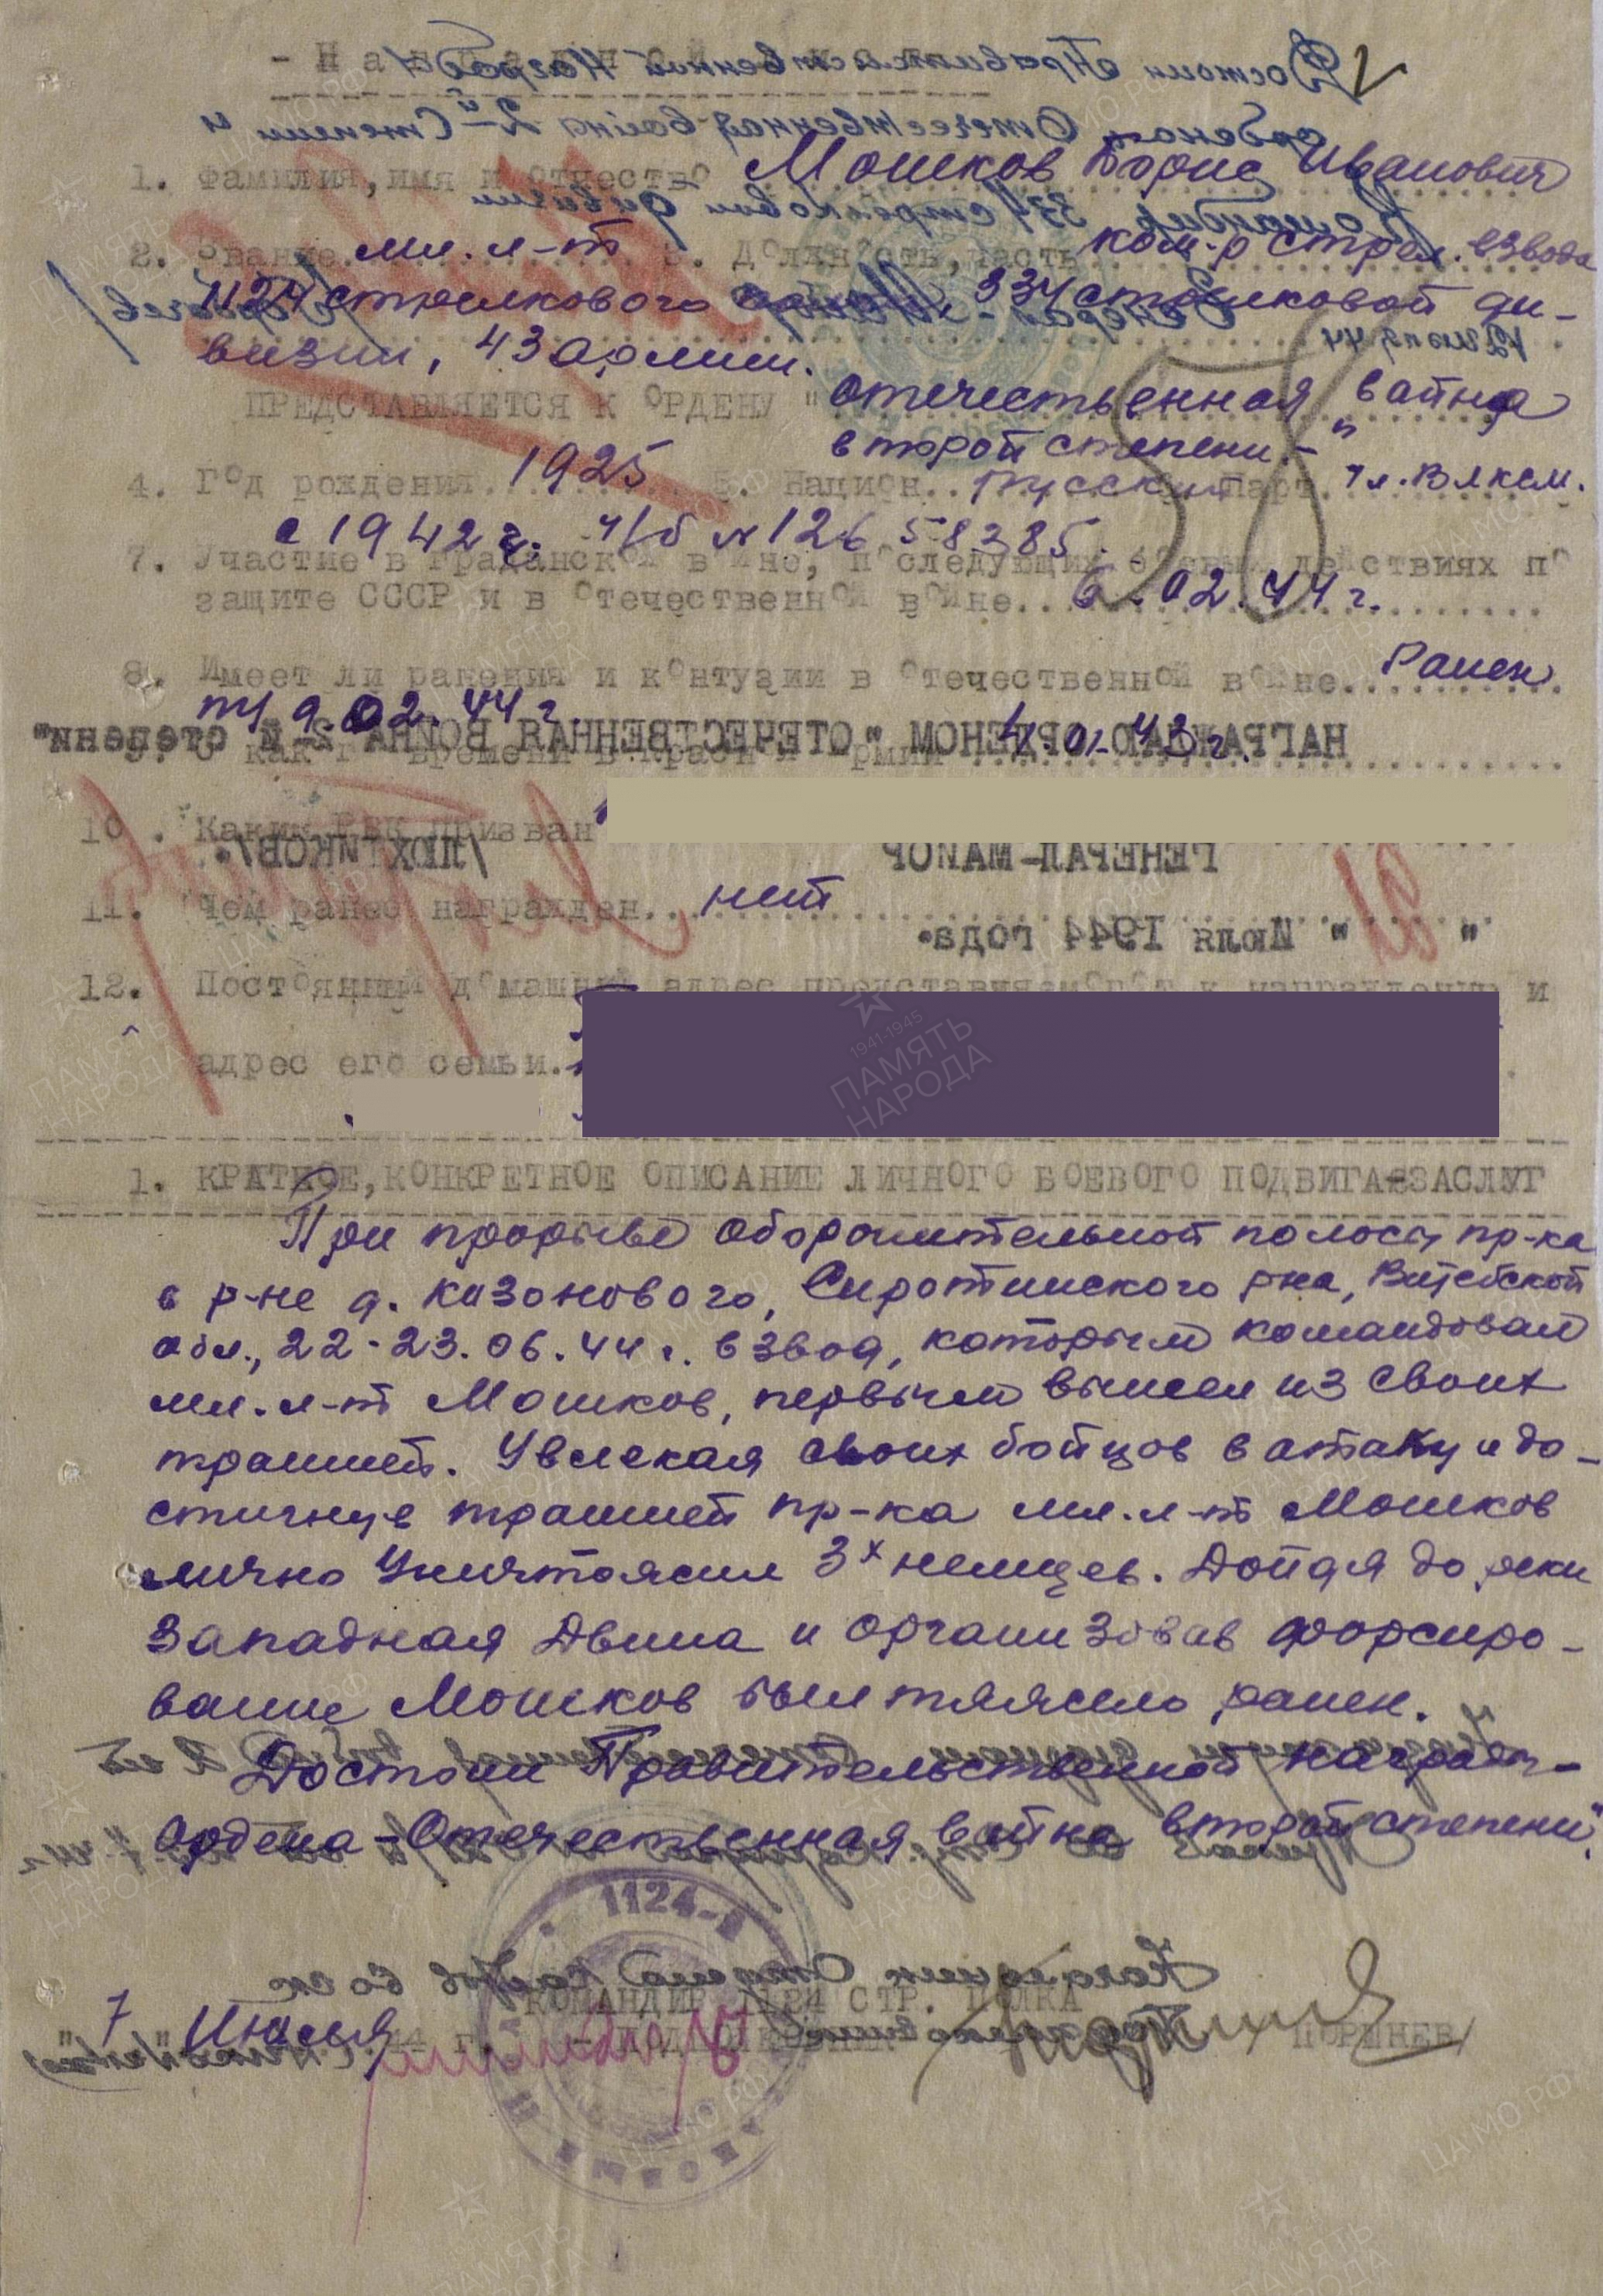 1. Фамилия, имя и отчество Мошков Борис Иванович
2. Звание мл. л-т 3. Должность, часть ком-р стрел. взвода
1124 стрелкового 334 стрелковой ди-
визии, 43 армии.
ПРЕДСТАВЛЯЕТСЯ К ОРДЕНУ "отечественная война
второй степени-"
4. Год рождения 1925 5. Национ. русский Парт. чл. Влксм.
с 1942 г. ч/б № 12658385.
7. Участие в гражданской войне, последующих боевых действиях по
защите СССР и в отечественной войне 6.02.44 г.
8. Имеет ли ранения и контузии в отечественной войне Ранен
9.02.44 г.
НАГРАЖДАЮ ОРДЕНОМ "ОТЕЧЕСТВЕННАЯ ВОЙНА 2-й степени"
9. С какого времени в Красной Армии 4.01.43 г.
10. Каким РВК призван
ГЕНЕРАЛ-МАЙОР /ЛЮХТИКОВ/.
11. Чем ранее награжден нет
" " Июля 1944 года.
12. Постоянный домашний адрес представляемого к награждению и
адрес его семьи.
1. КРАТКОЕ, КОНКРЕТНОЕ ОПИСАНИЕ ЛИЧНОГО БОЕВОГО ПОДВИГА-ЗАСЛУГ
При прорыве оборонительной полосы пр-ка
в р-не д. Казонового, Сиротинского рна, Витебской
обл., 22-23.06.44 г. взвод, которым командовал
мл. л-т Мошков, первым вышел из своих
траншей. Увлекая своих бойцов в атаку и до-
стигнув траншей пр-ка мл. л-т Мошков
лично уничтожил 3х немцев. Дойдя до реки
Западная Двина и организовав форсиро-
вание Мошков был тяжело ранен.
Достоин Правительственной награды-
ордена-Отечественная война второй степени".
1124-Й
КОМАНДИР 1124 СТР. ПОЛКА
"7" Июля 44 г. - ПОДПОЛКОВНИК /ПОРШНЕВ/
1941-1945
ПАМЯТЬ
НАРОДА
ЦА МО РФ